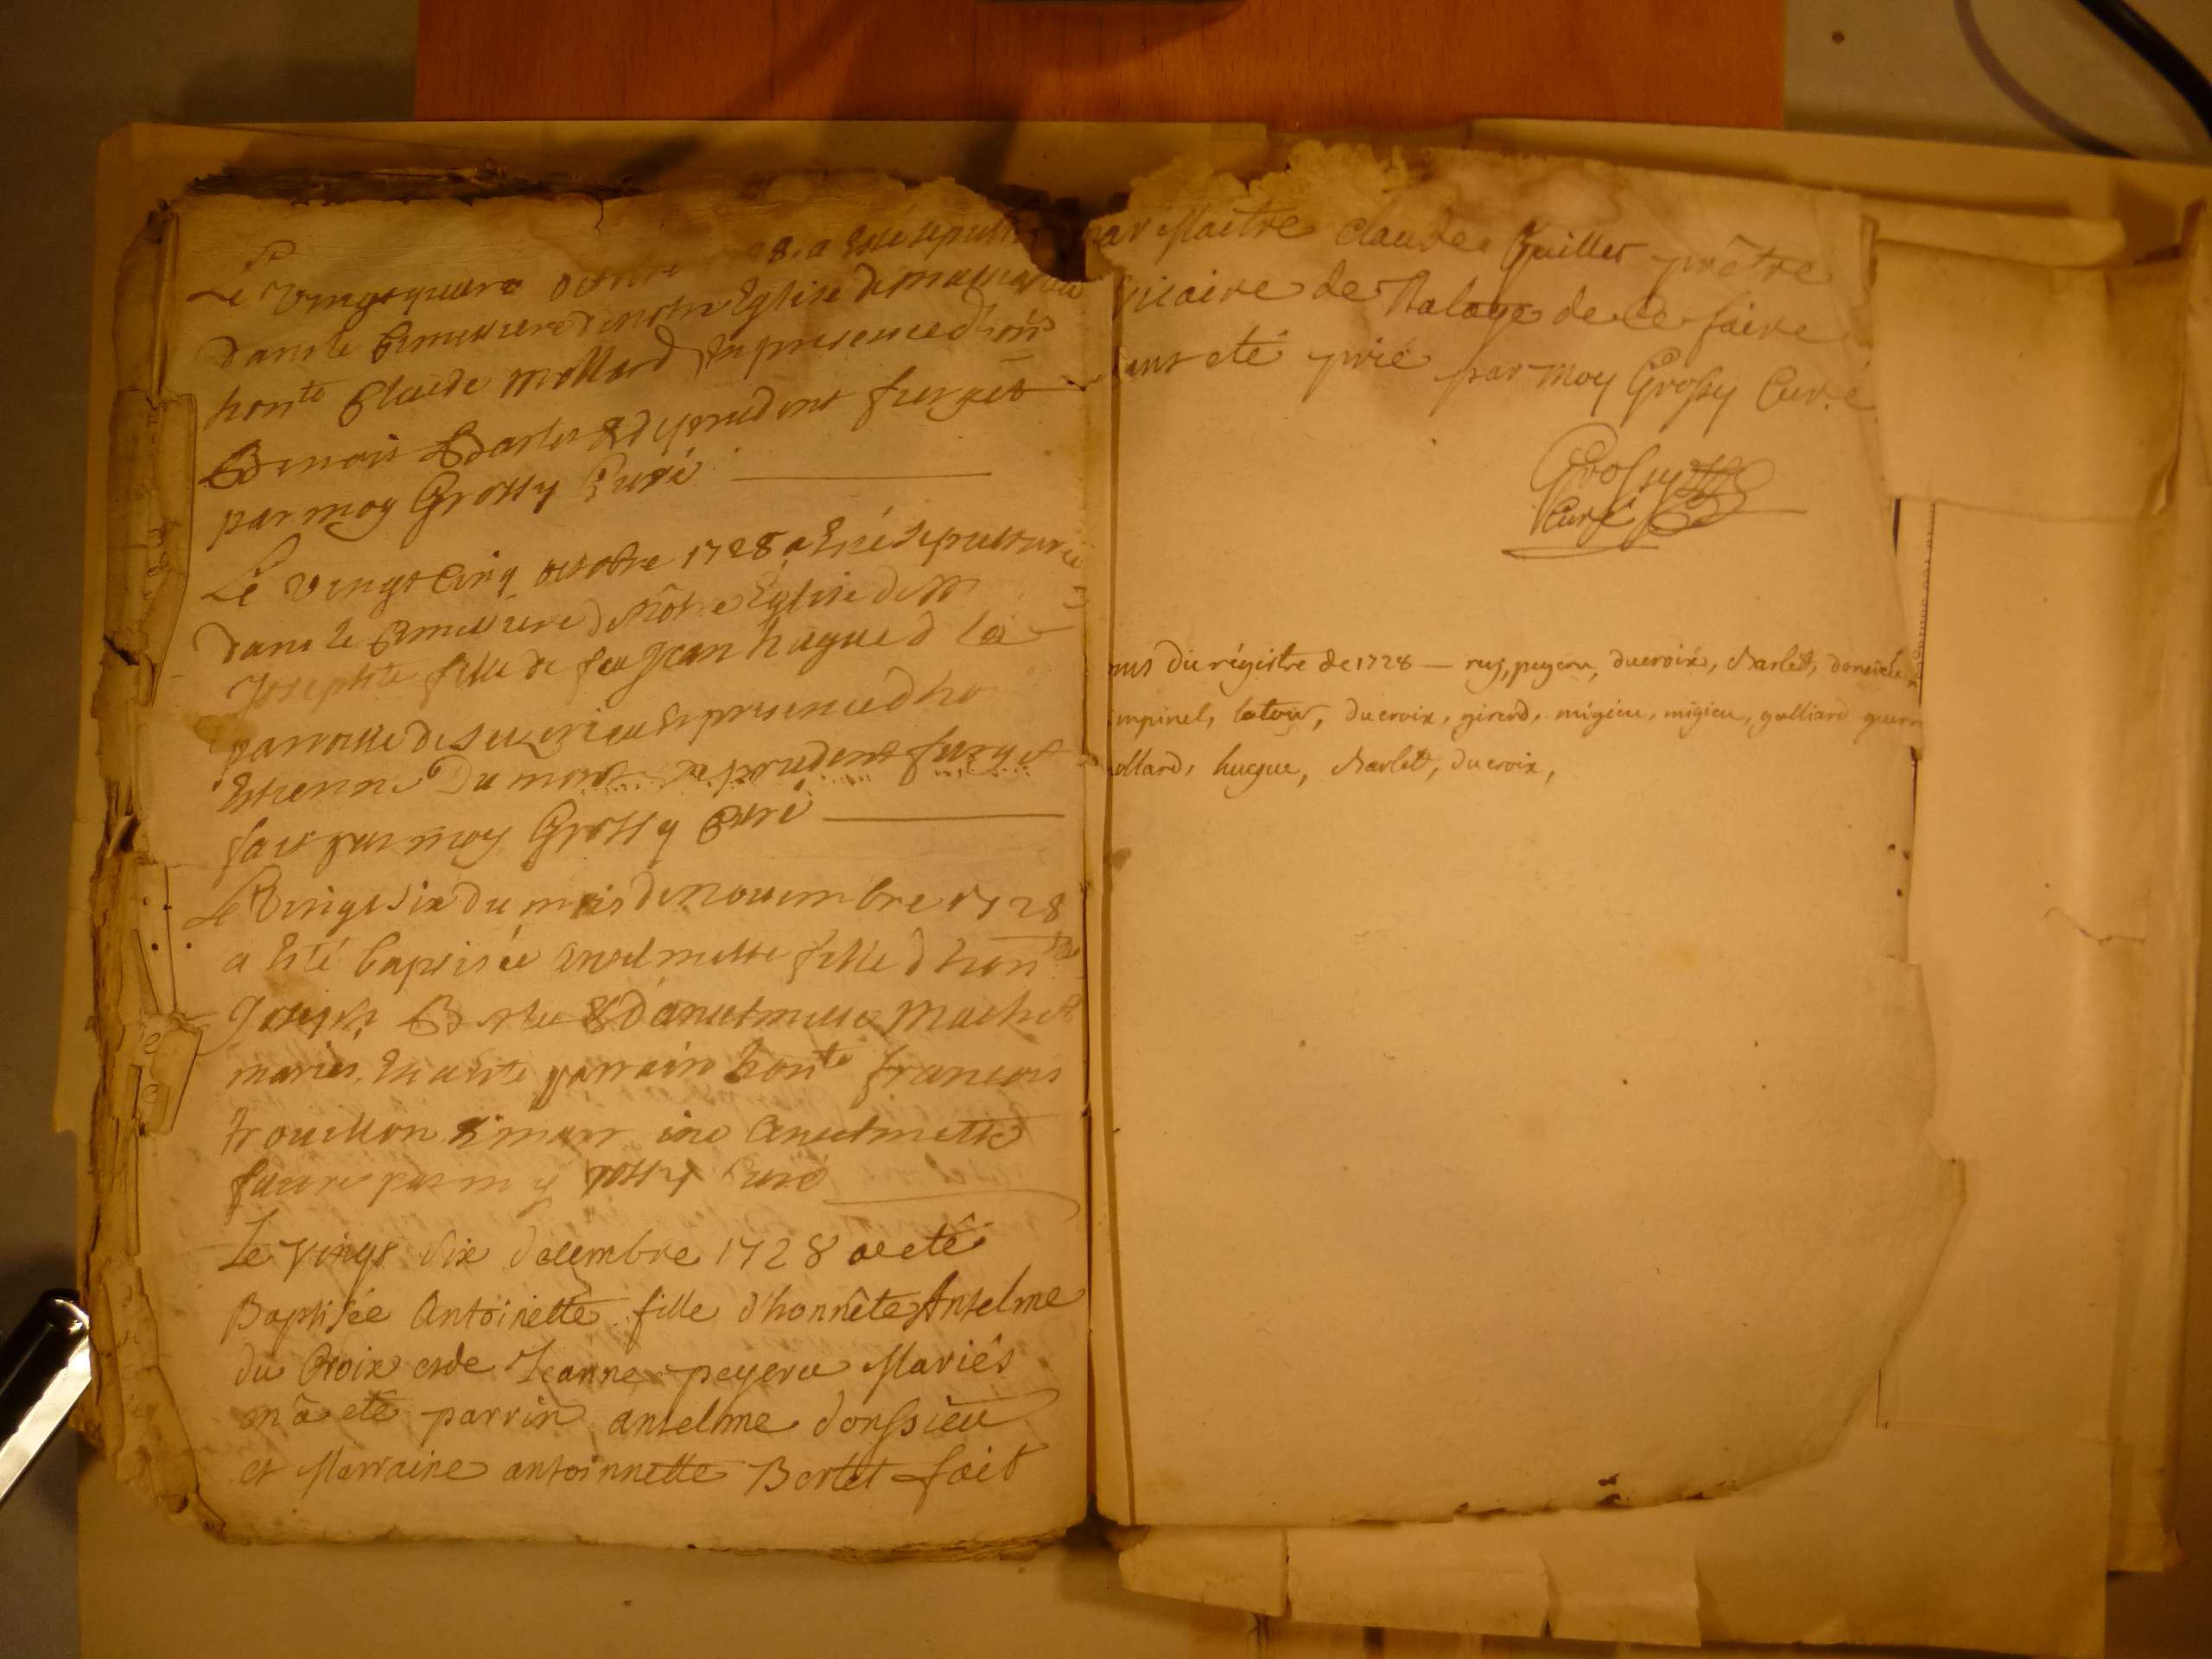 Le vingt quatre octobre 28. a Esté sepulturé
dans le Cimettiere de notre Eglise de
honte Claude Mollard En presence d'hon
Benois Barlet & de prudent furget
par moy Grossy Curé
Le vingt Cinq octobre 1728 a Esté sepulturée
dans le Cimettiere de Nôtre Eglise de
Josephte fille de feu Jean hugue d la
parroisse de En presence d ho
Estienne Du mont prudent furget
fait par moy Grossy Curé
Le Vingt Six du mois de Nouembre 1728
a Esté baptisée anselmette fille d hon
Joseph & D anselmette Machet
mariés En a esté parrain honte francois
trouillon & marr ine Anselmette
par m y rossy Curé
Le vingt Six decembre 1728 a eté
Baptisée Antoinette fille d'honnête Antelme
du Croix et de Jeanne peyeru Mariés
en a eté parrin antelme donssieu
et Marraine antoinnette Bertet fait
par Maitre claude Guillet prêtre
vicaire de de le faire
ant eté prié par moy Grossy Curé
Grossy
Curé
du régistre de 1728 — rey, peyeru, ducroix, charlet,
latour, ducroix, girerd, migieu, migieu, galliard
ollard, hugue, charlet, ducroix,